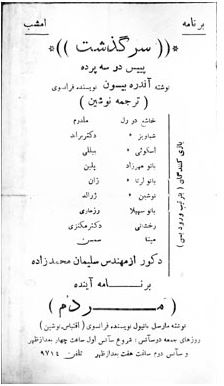 برنامه امشب
*((سرگذشت))*
پییس دو سه پرده
نوشته آندره بیسون نویسنده فرانسوی
(ترجمه نوشین)
بازی کنندگان (بترتیب ورود بسن)
خاشع در رل ملدرم
شباویز » دکتر براند
اسکوئی » بیللی
بانو مهرزاد » پلین
بانو لرتا » ژان
نوشین » ژرالد
بانو سهیلا » رزماری
رخشانی دکتر مکنزی
مینا سمسن
دکور از مهندس سلیمان محمدزاده
برنامه آینده
(مردم)
نوشته مارسل پانیول نویسنده فرانسوی (اقتباس نوشین)
روزهای جمعه دو سانس: شروع سانس اول ساعت چهار بعدازظهر
و سانس دوم ساعت هفت بعدازظهر تلفن ۹۷۱۴